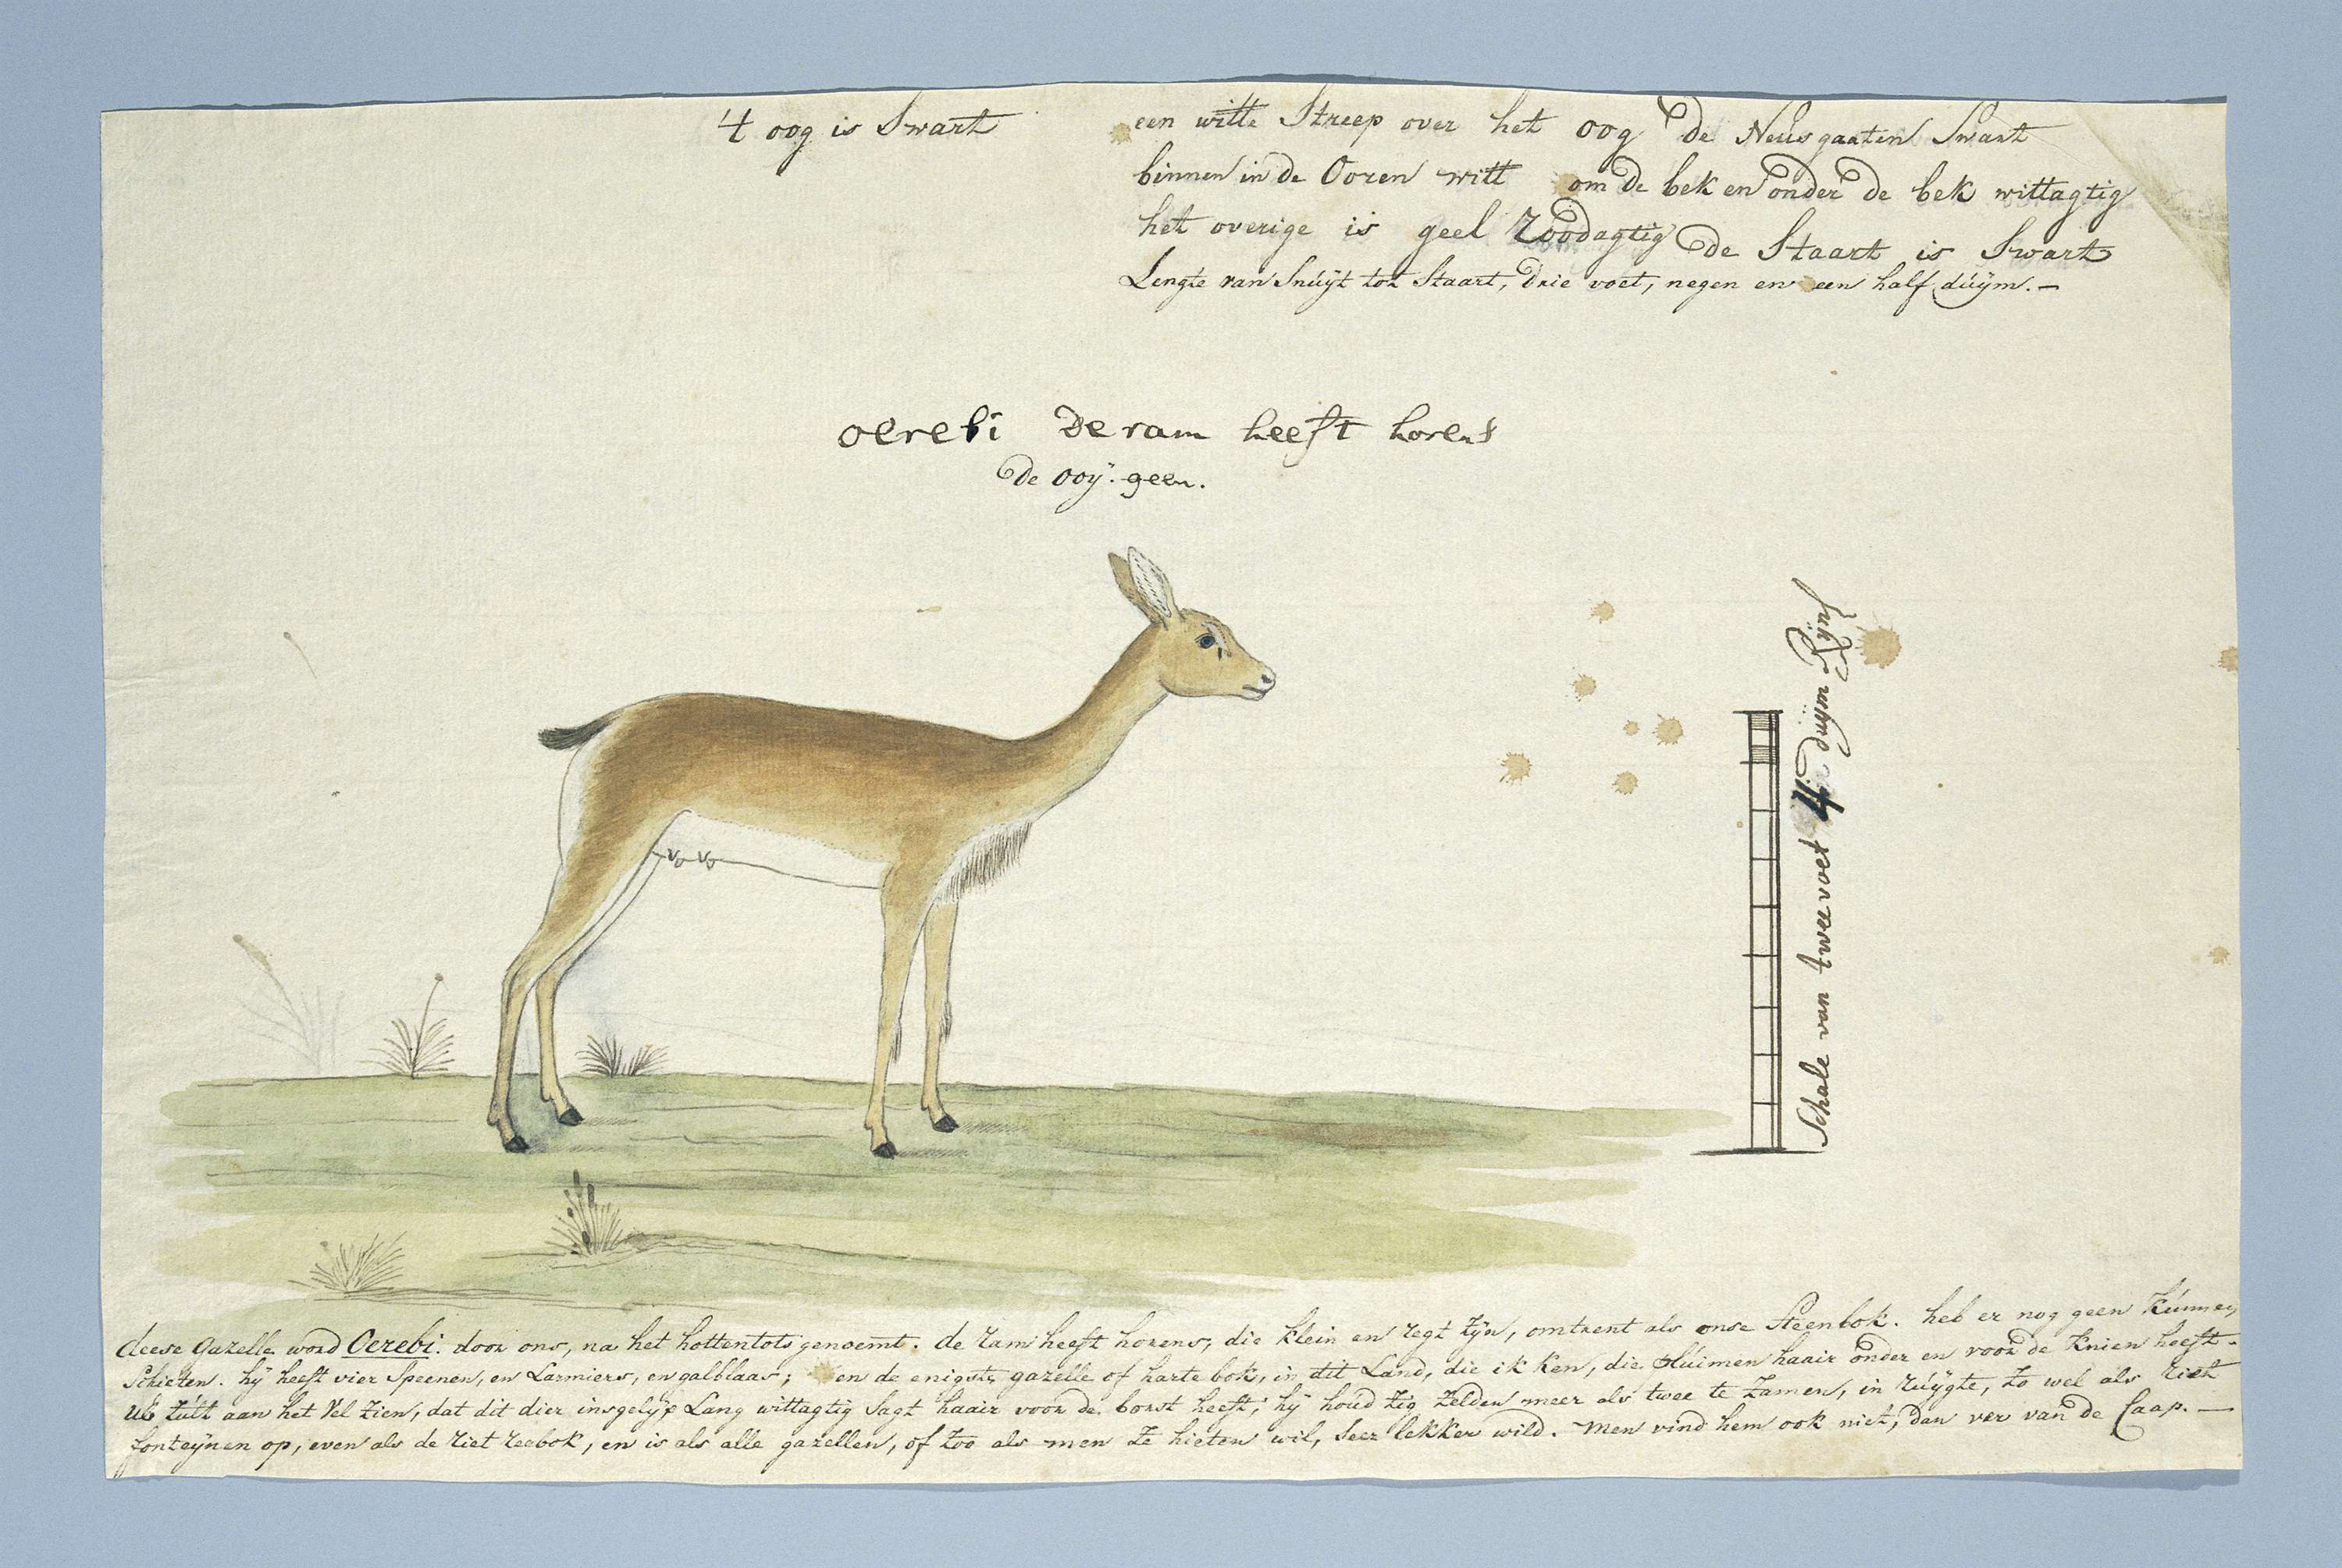 't oog is Swart
een witte Streep over het oog de Neusgaaten Swart
binnen in de Ooren witt om de bek en onder de bek wittagtig
het overige is geel Roodagtig de Staart is Swart
Lengte van Snúÿt tot Staart, drie voet, negen en een half dúÿm. —
oerebi De ram heeft horens
De ooÿ. geen.
Schale van twee voet 4 duijm Rÿnl
deese Gazelle word Oerebi. door ons, na het hottentots genoemt. de ram heeft horens, die klein en regt zÿn, omtrent als onse Steenbok. heb er nog geen kúnnen
Schieten. hÿ heeft vier Speenen, en Larmiers, en galblaas; en de enigste gazelle of harte bok, in dit Land, die ik ken, die pluimen haair onder en voor de knien heeft -
UE zúlt aan het Vel zien, dat dit dier insgelÿx Lang wittagtig Sagt haair voor de borst heeft; hÿ houd zig zelden meer als twee te zamen, in rúÿgte, zo wel als riet
fonteÿnen op, even als de riet reebok, en is als alle gazellen, of zoo als men ze hieten wil, seer lekker wild. Men vind hem ook niet, dan ver van de Caap. —